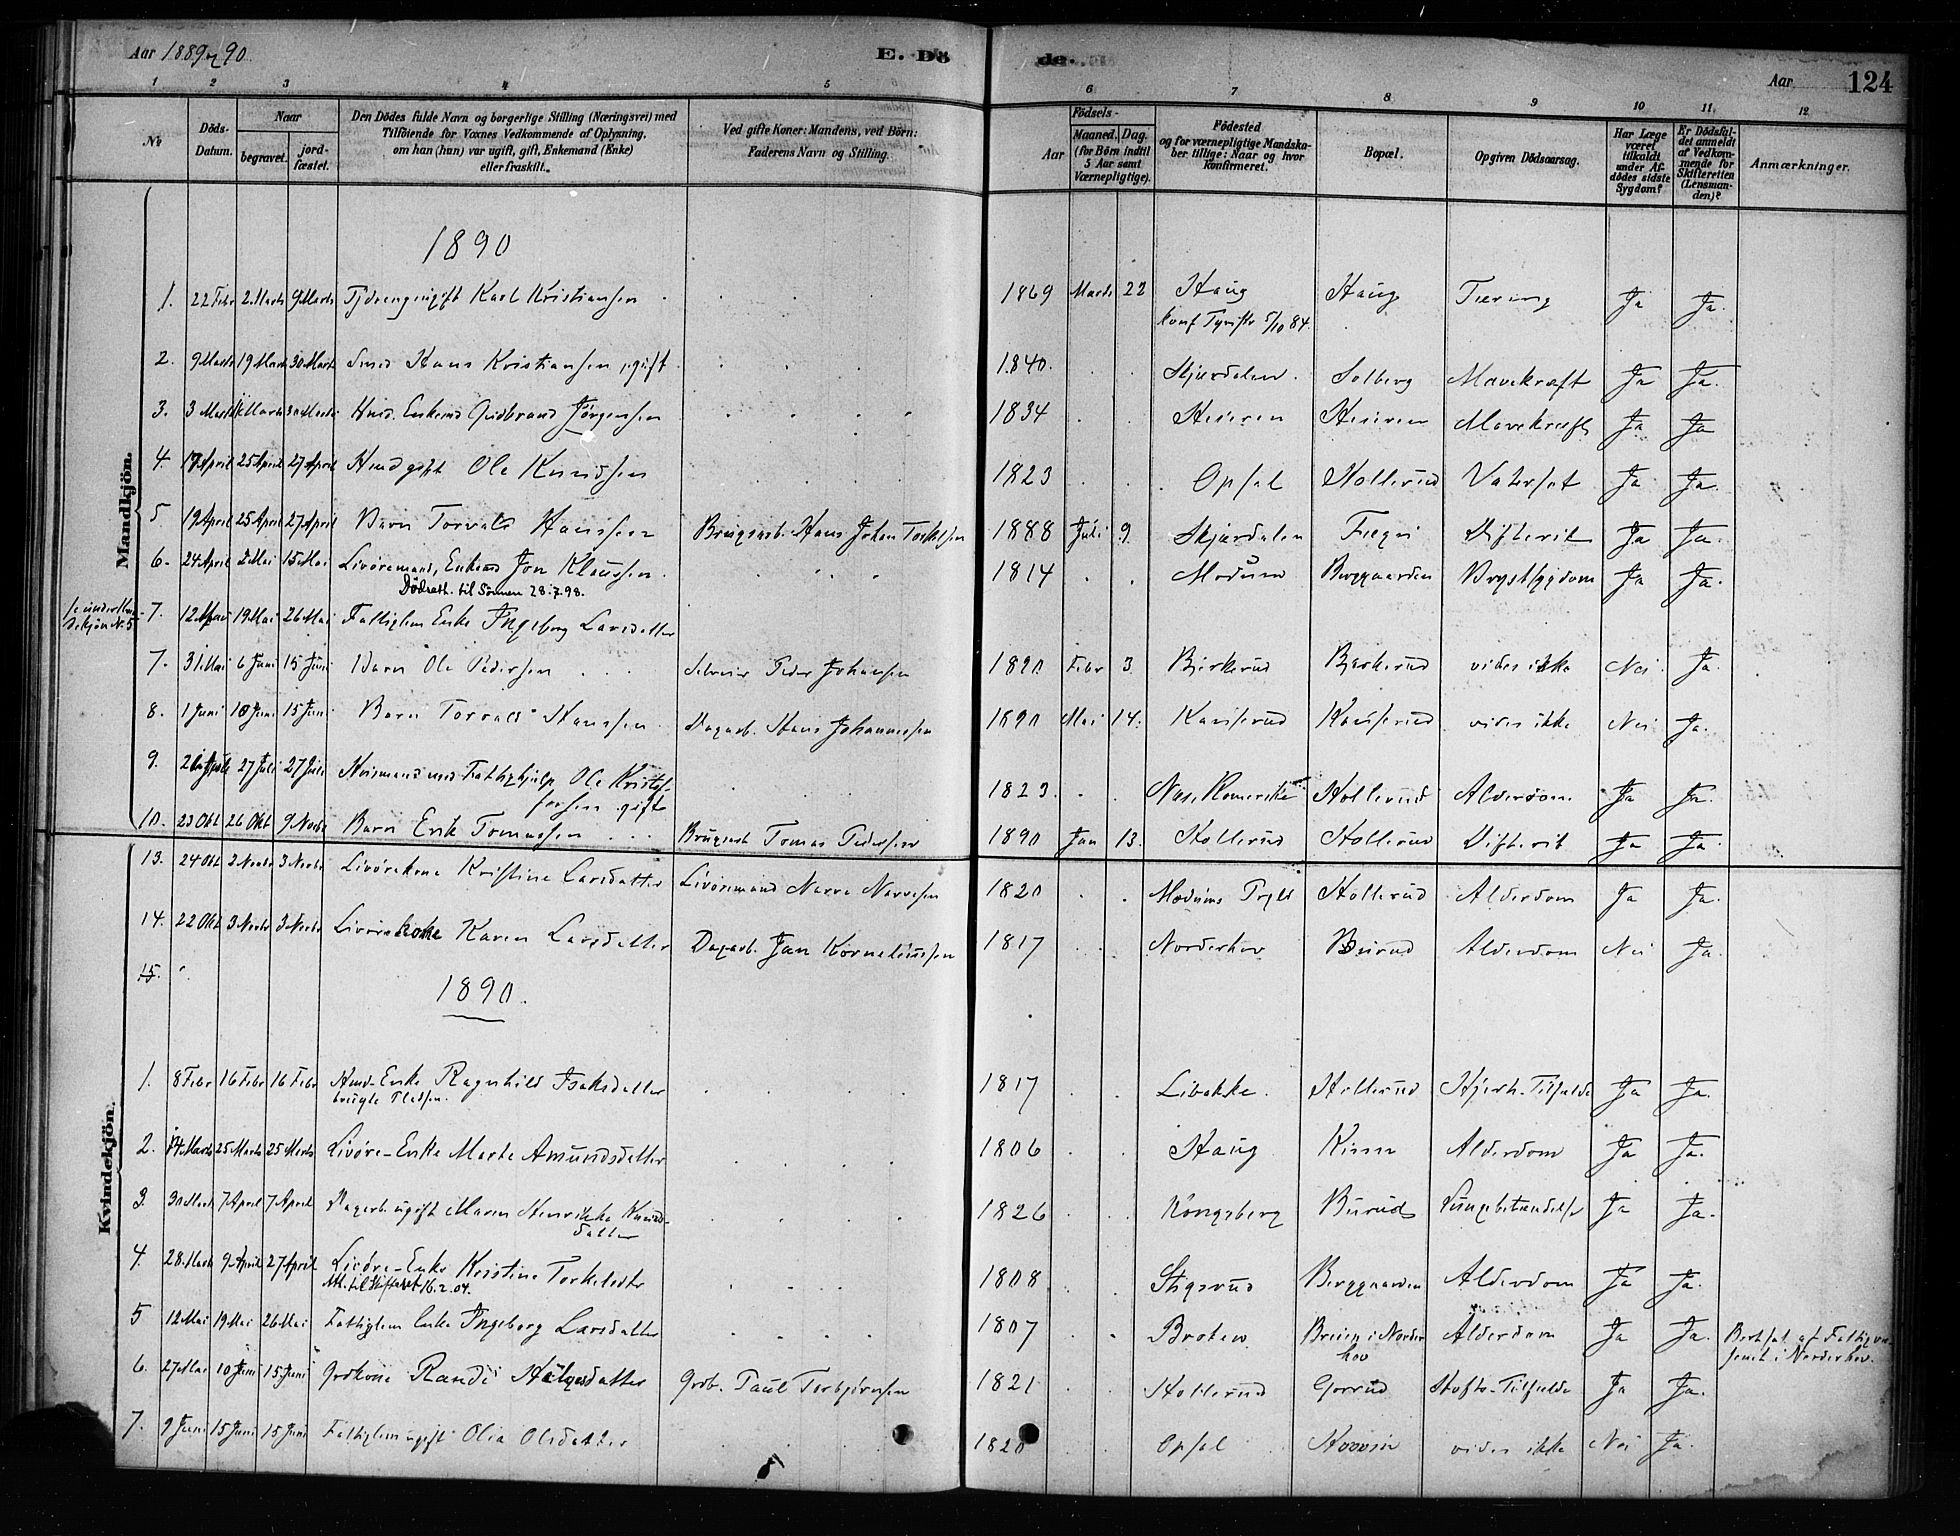 Aar 1889 og 90.
E. Dö
de.
Aar
124
1 2 3 4 5
6 7 8 9 10 11 12
No
Döds-Datum.
Naar
begravet.
jord-fæstet.
Den Dödes fulde Navn og borgerlige Stilling (Næringsvei) med
Tilföiende for Voxnes Vedkommende af Oplysning,
om han (hun) var ugift, gift, Enkemand (Enke)
eller fraskilt.
Ved gifte Koner: Mandens, ved Börn:
Faderens Navn og Stilling.
Födsels-
Aar
Maaned. Dag.
(for Börn indtil
5 Aar samt
Værnepligtige).
Födested
og for værnepligtige Mandska-
ber tillige: Naar og hvor
Konfirmeret.
Bopæl.
Opgiven Dödsaarsag.
Har Læge
været
tilkaldt
under Af-
dödes sidste
Sygdom?
Er Dödsfal-
det anmeldt
af Vedkom-
mende for
Skifteretten
(Lensman-
den)?
Anmærkninger.
Mandkjön.
1890
1. 22 Febr 2 Marts 9 Marts Karl Kristiansen 1869 Marts 22 Haug Haug Tæring Ja Ja.
konf Tyristr 5/10 84.
2. 9 Marts 19 Marts 30 Marts Smed Hans Kristiansen, gift 1840. Skjærdalen. Solberg Mavekræft Ja Ja.
3. 3 Marts Marts 30 Marts Husm. Enkemd Gudbrand Jørgensen 1834 Heieren Heieren Mavekræft Ja Ja
4. 17 April 25 April 27 April Husmd gift Ole Knudsen 1823 Opsal Hollerud Vatersot Ja Ja.
5 19 April 25 April 27 April Barn Torvald Hanssen Brugsarb. Hans Johan Torkelsen 1888 Juli 9. Skjærdalen Fægri Difterit Ja Ja.
6. 24 April 2 Mai 15 Mai Livøremand, Enkemd Jon Klaussen. 1814 Modum Berggaarden Brystsygdom Ja Ja.
Dödsatt. til Sønnen 28.7.98.
se under Kvin-
dekjön N. 5
7. 12 Mai 19 Mai 26 Mai Fattiglem Enke Ingeborg Larsdatter
7. 31 Mai 6 Juni 15 Juni Barn Ole Pedersen Selveier Peder Johansen 1890 Febr 3. Bjerkerud Bjerkerud vides ikke Nei. Ja.
8. 1 Juni 10 Juni 15 Juni Barn Torvald Hanssen. Dagarb. Hans Johannessen 1890 Mai 14. Kauserud Kauserud vides ikke Nei Ja.
9. 27 Juli 27 Juli Husmand med Fattighjælp Ole Kristof-
fersen gift 1823. Nes, Romerike Hollerud Alderdom Ja Ja.
10. 23 Okt 26 Okt 9 Novbr Barn Erik Tomassen Brugsarb Tomas Pedersen 1890 Jan 13. Hollerud Hollerud Difterit Ja Ja.
Kvindekjön.
13. 24 Okt 3 Novbr 3 Novbr Livørekone Kristine Larsdatter Livøremand Narve Narvesen 1820 Modums Prgld Hollerud Alderdom Ja Ja.
14. 22 Okt 3 Novbr 3 Novbr Livørekone Karen Larsdatter Dagarb. Jan Korneliussen 1817 Norderhov Burud Alderdom Nei Ja.
15.
1890.
1. 8 Febr 16 Febr 16 Febr Husm-Enke Ragnhild Isaksdatter 1817 Libakke. Hollerud Hjerte-Tilfælde Ja Ja.
brugte Pladsen.
2. 14 Marts 25 Marts 25 Marts Livøre-Enke Marte Amundsdatter 1806 Haug Alderdom Ja Ja.
3. 30 Marts 7 April 7 April Dagarb. ugift Maren Henrikke Knuds-
datter 1826 Kongsberg Burud Lungebetændelse Ja Ja.
4. 28. Marts 9 April 27 April Livøre-Enke Kristine Torkelsdtr 1808 Stigsrud Berggaarden Alderdom Ja Ja.
Att. til Skifteret 16.2.04.
5 12 Mai 19 Mai 26 Mai Fattiglem Enke Ingeborg Larsdatter 1807 Broten Breien i Norder
hov Alderdom Ja Ja. af Fattigvæ-
senet i Norderhov.
6. 27 Mai 10 Juni 15 Juni Grdkone Randi Helgesdatter Grdb. Paul Torbjørnsen 1821 Hollerud Gorrud Hofte-Tilfælde Ja Ja.
7. 9 Juni 15 Juni 15 Juni Fattiglem ugift Olea Olsdatter 1820 Opsal Hovvin vides ikke Nei Ja.